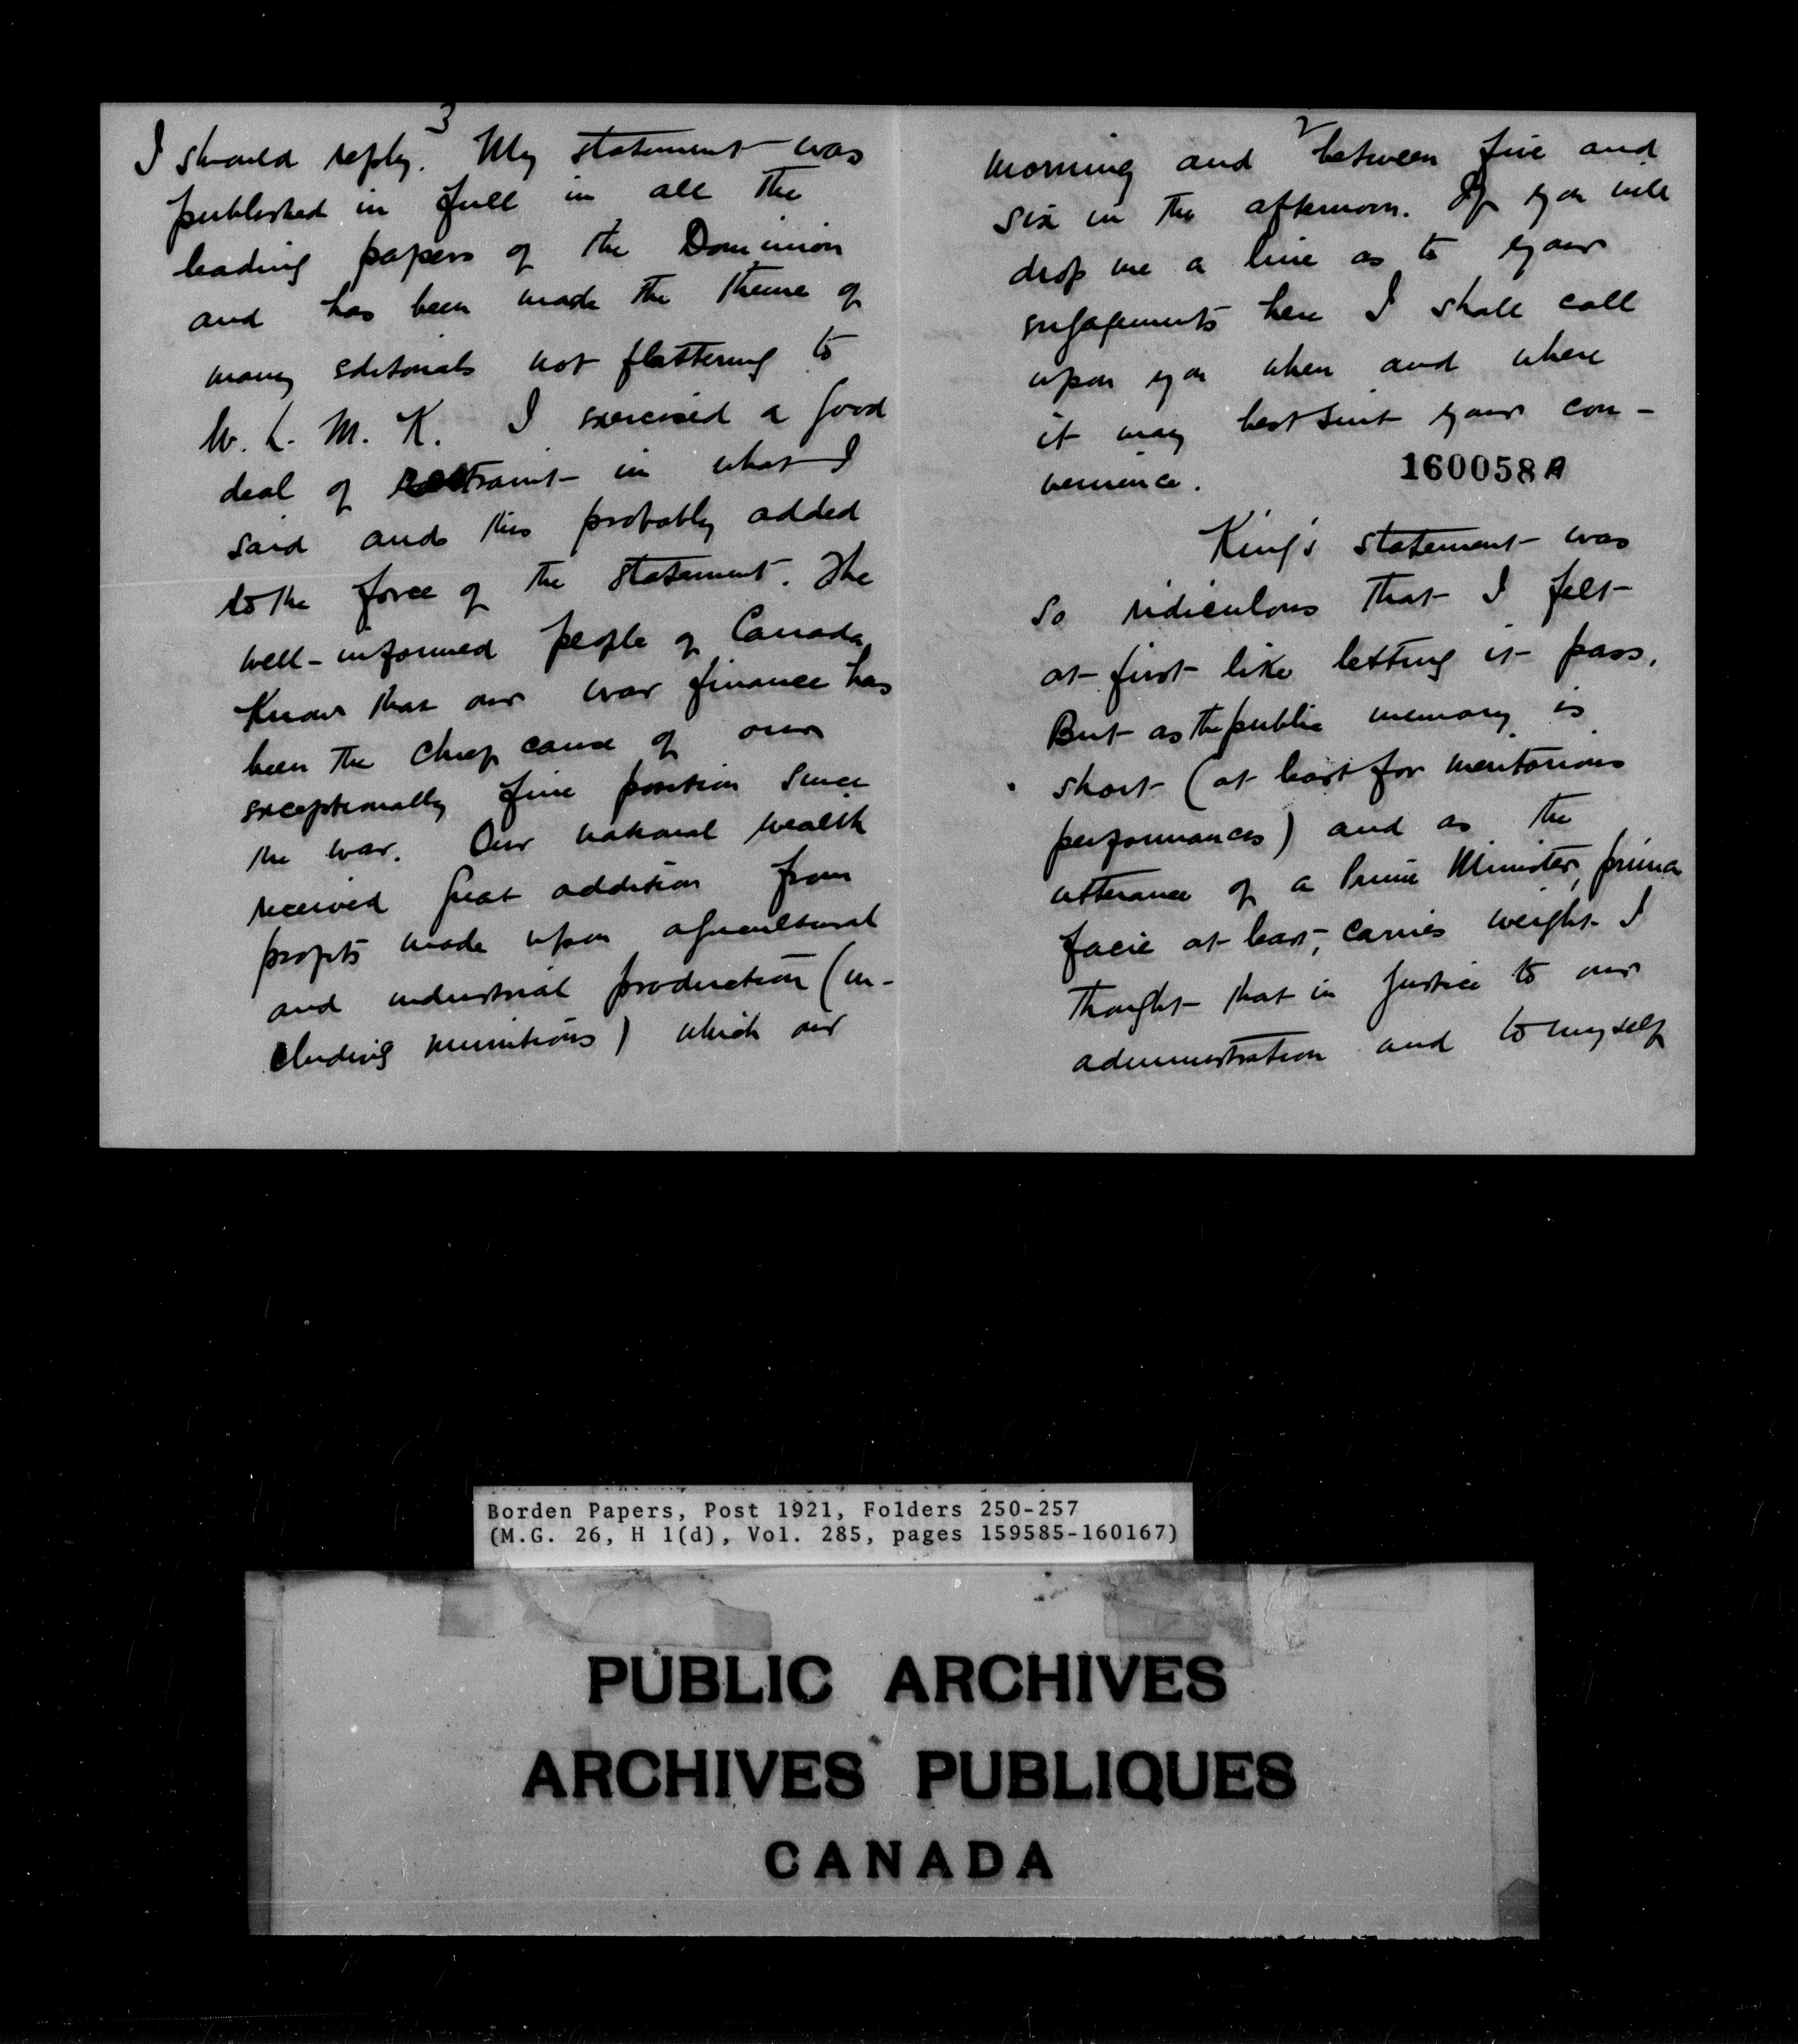 3
I should reply. My statement was
published in full in all the
leading papers of the Dominion
and has been made the theme of
many editorials not flattering to
W. L. M. K. I exercised a good
deal of restraint in what I
said and this probably added
to the force of the statement. The
well-informed people of Canada
know that our war finance has
been the chief cause of our
exceptionally fine position since
the war. Our national wealth
received great addition from
profits made upon agricultural
and industrial production (in-
cluding munitions) which our
2
morning and between five and
six in the afternoon. If you will
drop me a line as to your
engagements here I shall call
upon you when and where
it may best suit your con-
venience.
160058A
King's statement was
so ridiculous that I felt
at first like letting it pass.
But as the public memory is
short (at least for meritorious
performances) and as the
utterance of a Prime Minister, prima
facie at least, carries weight I
thought that in justice to our
administration and to myself
Borden Papers, Post 1921, Folders 250-257
(M.G. 26, H 1(d), Vol. 285, pages 159585-160167)
PUBLIC ARCHIVES
ARCHIVES PUBLIQUES
CANADA